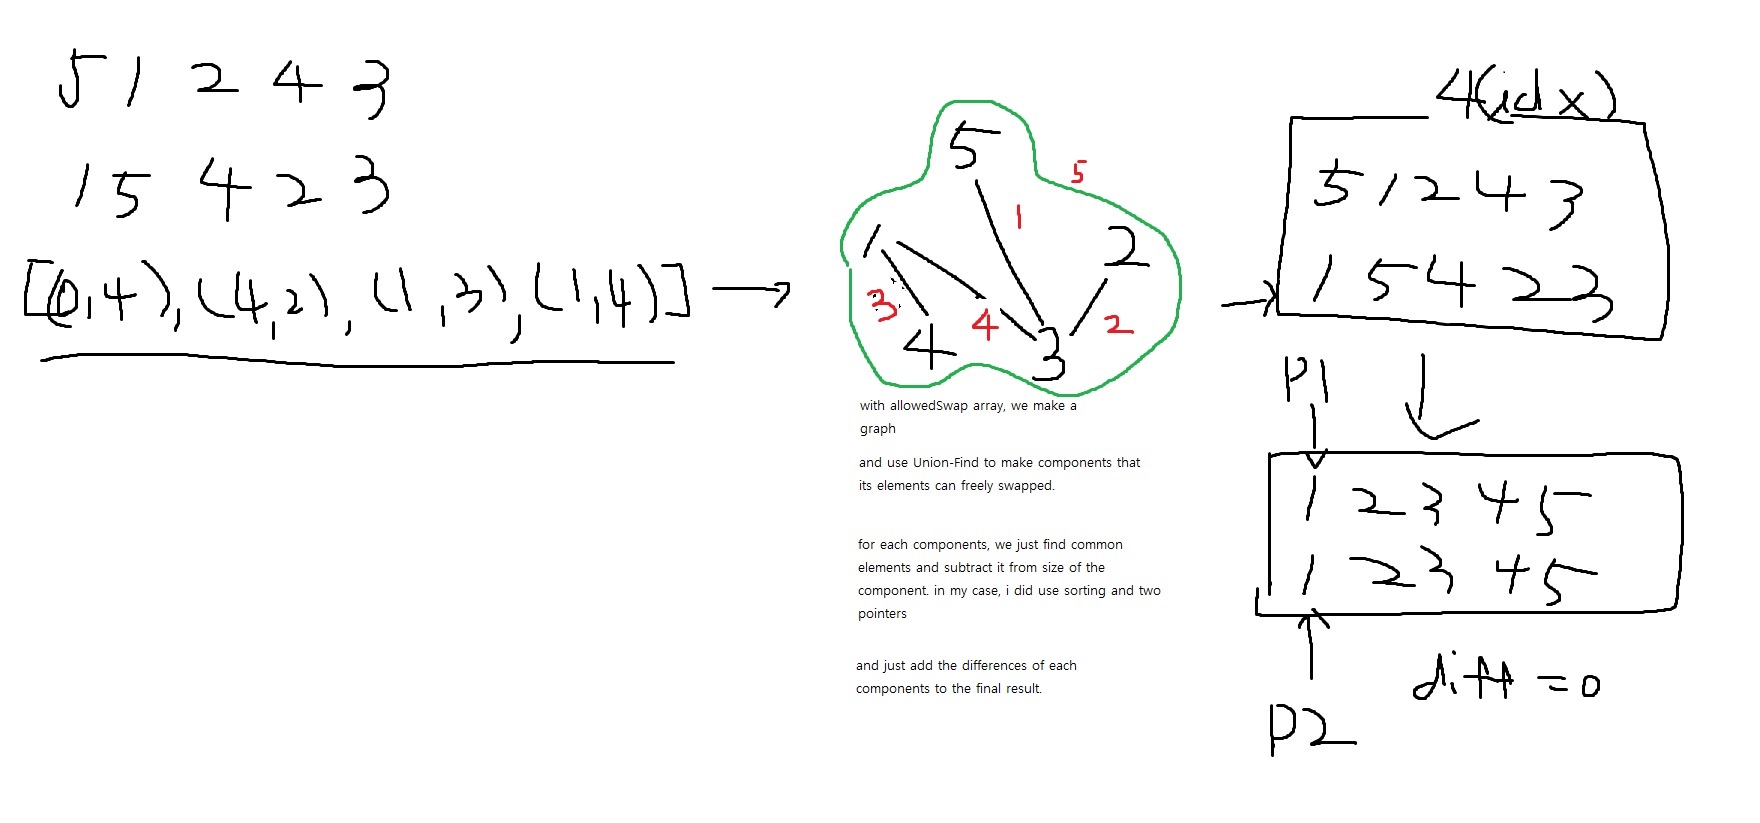 5 1 2 4 3
1 5 4 2 3
[(0,4), (4,2), (1,3), (1,4)] →
5
5
1
1
2
3
4
2
4
3
with allowedSwap array, we make a
graph
and use Union-Find to make components that
its elements can freely swapped.
for each components, we just find common
elements and subtract it from size of the
component. in my case, i did use sorting and two
pointers
and just add the differences of each
components to the final result.
4(idx)
5 1 2 4 3
1 5 4 2 3
P1
1 2 3 4 5
1 2 3 4 5
diff = 0
P2